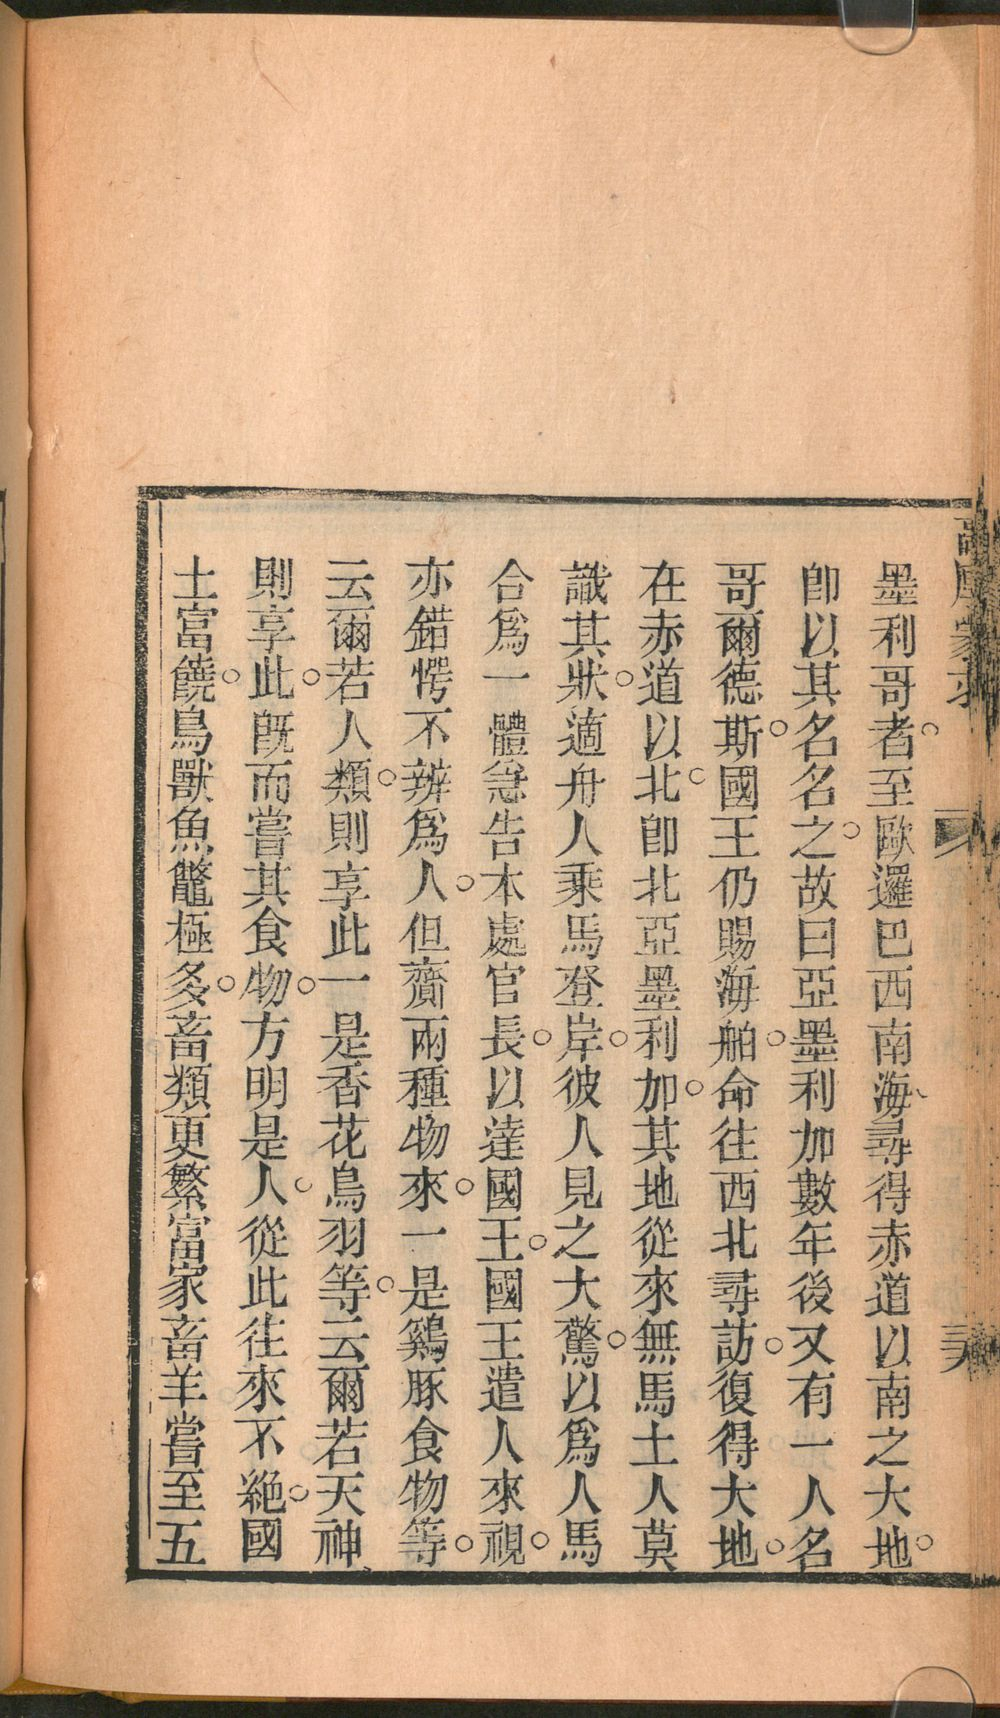 墨利哥者。至歐邏巴西南海、尋得赤道以南之大地。
卽以其名名之。故曰亞墨利加數年後又有一人名
哥爾德斯。國王仍賜海舶。命往西北尋訪。復得大地。
在赤道以北。卽北亞墨利加。其地從來無馬土人莫
識其狀。適舟人乘馬登岸。彼人見之大驚。以爲人馬
合爲一體急告本處官長。以達國王。國王遣人來視。
亦錯愕不辨爲人。但齎兩種物來。一是鷄豚食物等。
云爾若人類。則享此一是香花鳥羽等。云爾若天神、
則享此。旣而嘗其食物。方明是人。從此往來不絕。國
土富饒。鳥獸魚鼈極多。畜類更繁富家畜羊嘗至五